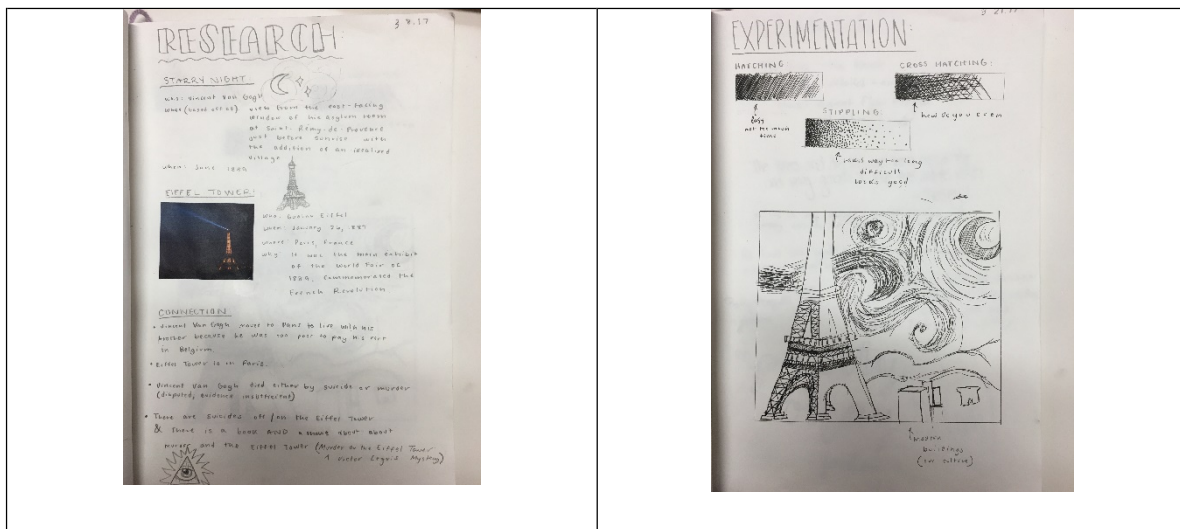 3.8.17
RESEARCH:
STARRY NIGHT
who: Vincent Van Gogh
view from the east-facing
window of his asylum room
at Saint-Remy-de-Provence
just before sunrise with
the addition of an idealized
village
when: June 1889
EIFFEL TOWER:
who: Gustav Eiffel
when: January
where: Paris, France
why: it was the main exhibit
of the World Fair of
1889, commemorated the
French Revolution
CONNECTION
• Vincent Van Gogh moves to Paris to live with his
brother because he was too poor to pay his
in Belgium
• Eiffel Tower is in Paris
• Vincent Van Gogh died either by suicide or murder
(disputed; evidence insufficient)
• There are suicides off/on the Eiffel Tower
& there is a book AND a movie about
murder and the Eiffel Tower (Murder on the Eiffel Tower
A Victor Legris Mystery)
EXPERIMENTATION:
HATCHING:
CROSS HATCHING:
easy
STIPPLING
how do you even
difficult
looks good
modern
buildings
(for culture)